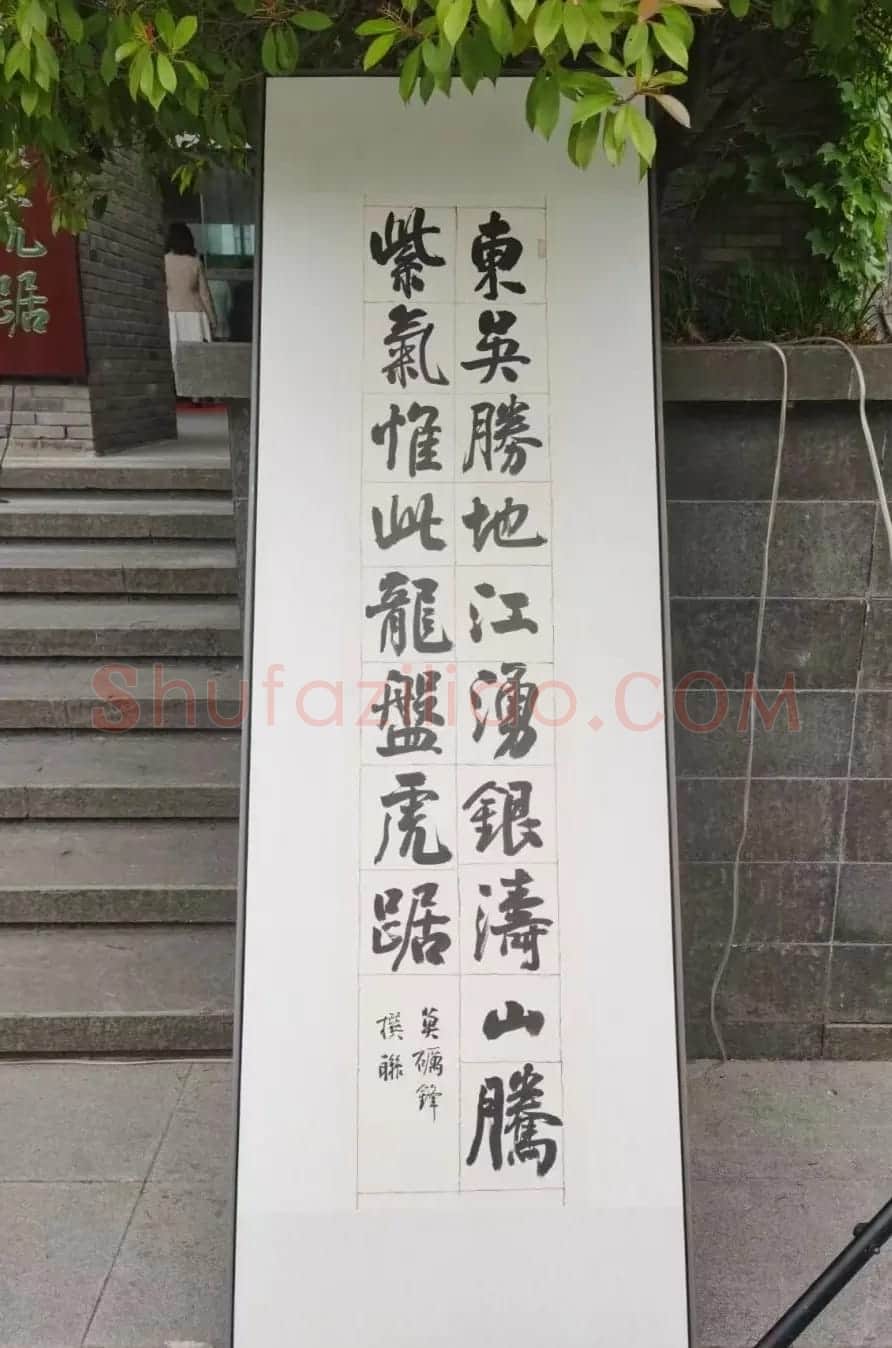 東吳勝地江湧銀濤山騰
紫氣惟此龍盤虎踞
莫礪鋒
撰聯
虎踞
Shufaziliao.COM